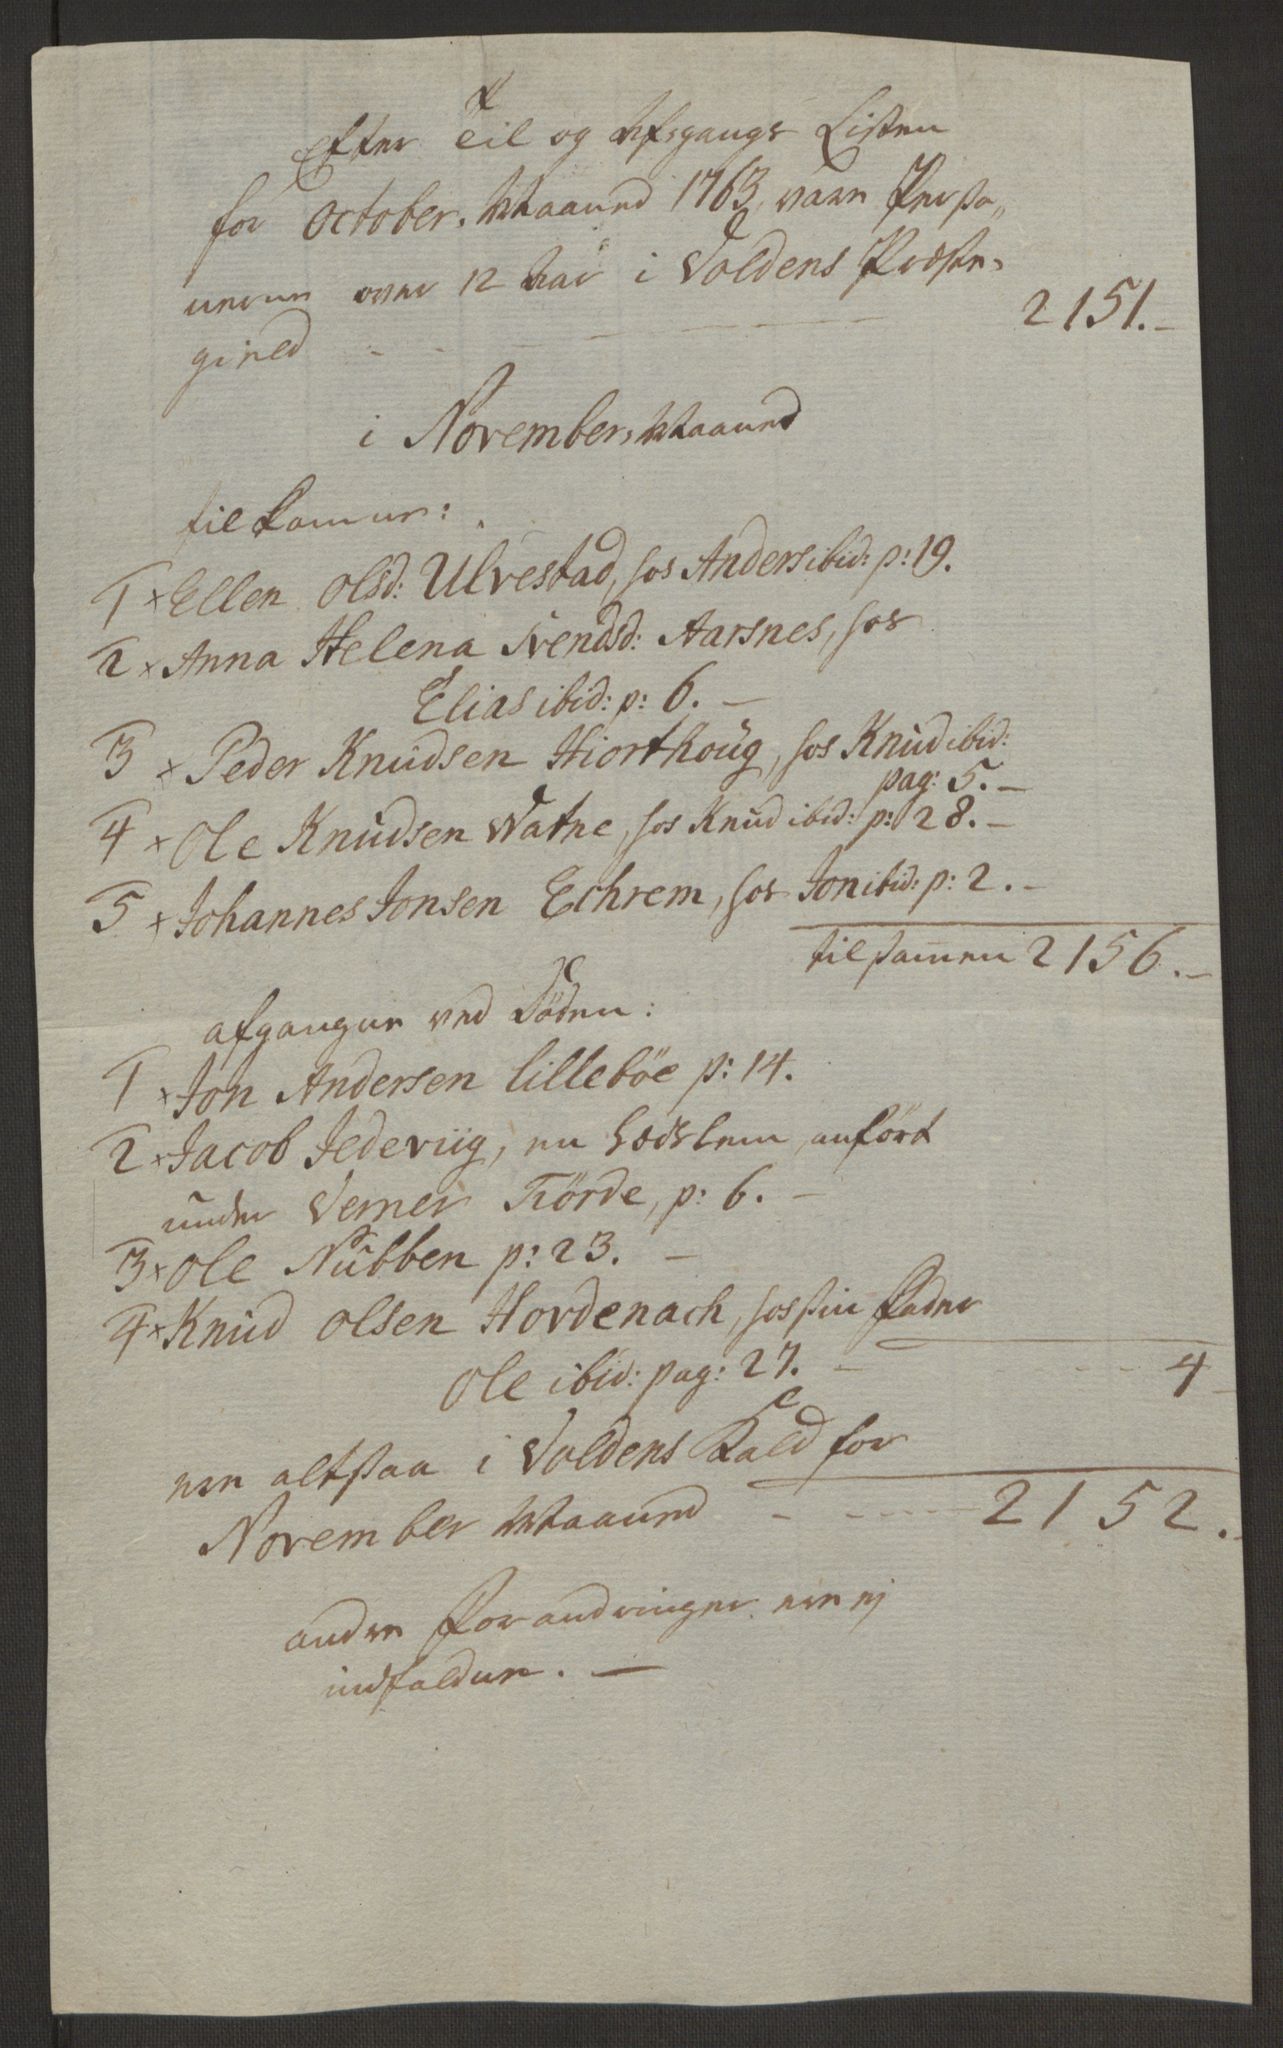 Efter Til og Afgangs Listen
for October Maaned 1763, vare Perso„
nerne over 12 Aar i Voldens Præste-
gield - - - 2151.-
i November Maaned
tilkomne:
1 × Ellen Olsd: Ulvestad, hos Anders ibid: p: 19.
2 × Anna Helena Svendsd: Aarsnes, hos
Elias ibid: p: 6. -
3 × Peder Knudsen Hiorthoug, hos Knud ibid:
pag: 5. -
4 × Ole Knudsen Watne, hos Knud ibid: p: 28. -
5 × Johannes Jonsen Echrem, hos Jon ibid: p: 2. -
tilsamen 2156. -
afgangne ved Döden:
1 × Jon Andersen Lilleböe p: 14.
2 × Jacob Jedeviig, en Lædslem, anfört
under Verner Förde, p: 6. -
3 × Ole Nubben p: 23. -
4 × Knud Olsen Hovdenach, hos sin Fader
Ole ibid: pag: 27. - - - 4
ere altsaa i Voldens Kald for
November Maaned - - - 2152.
andre Forandringer ere ej
indfaldne. -